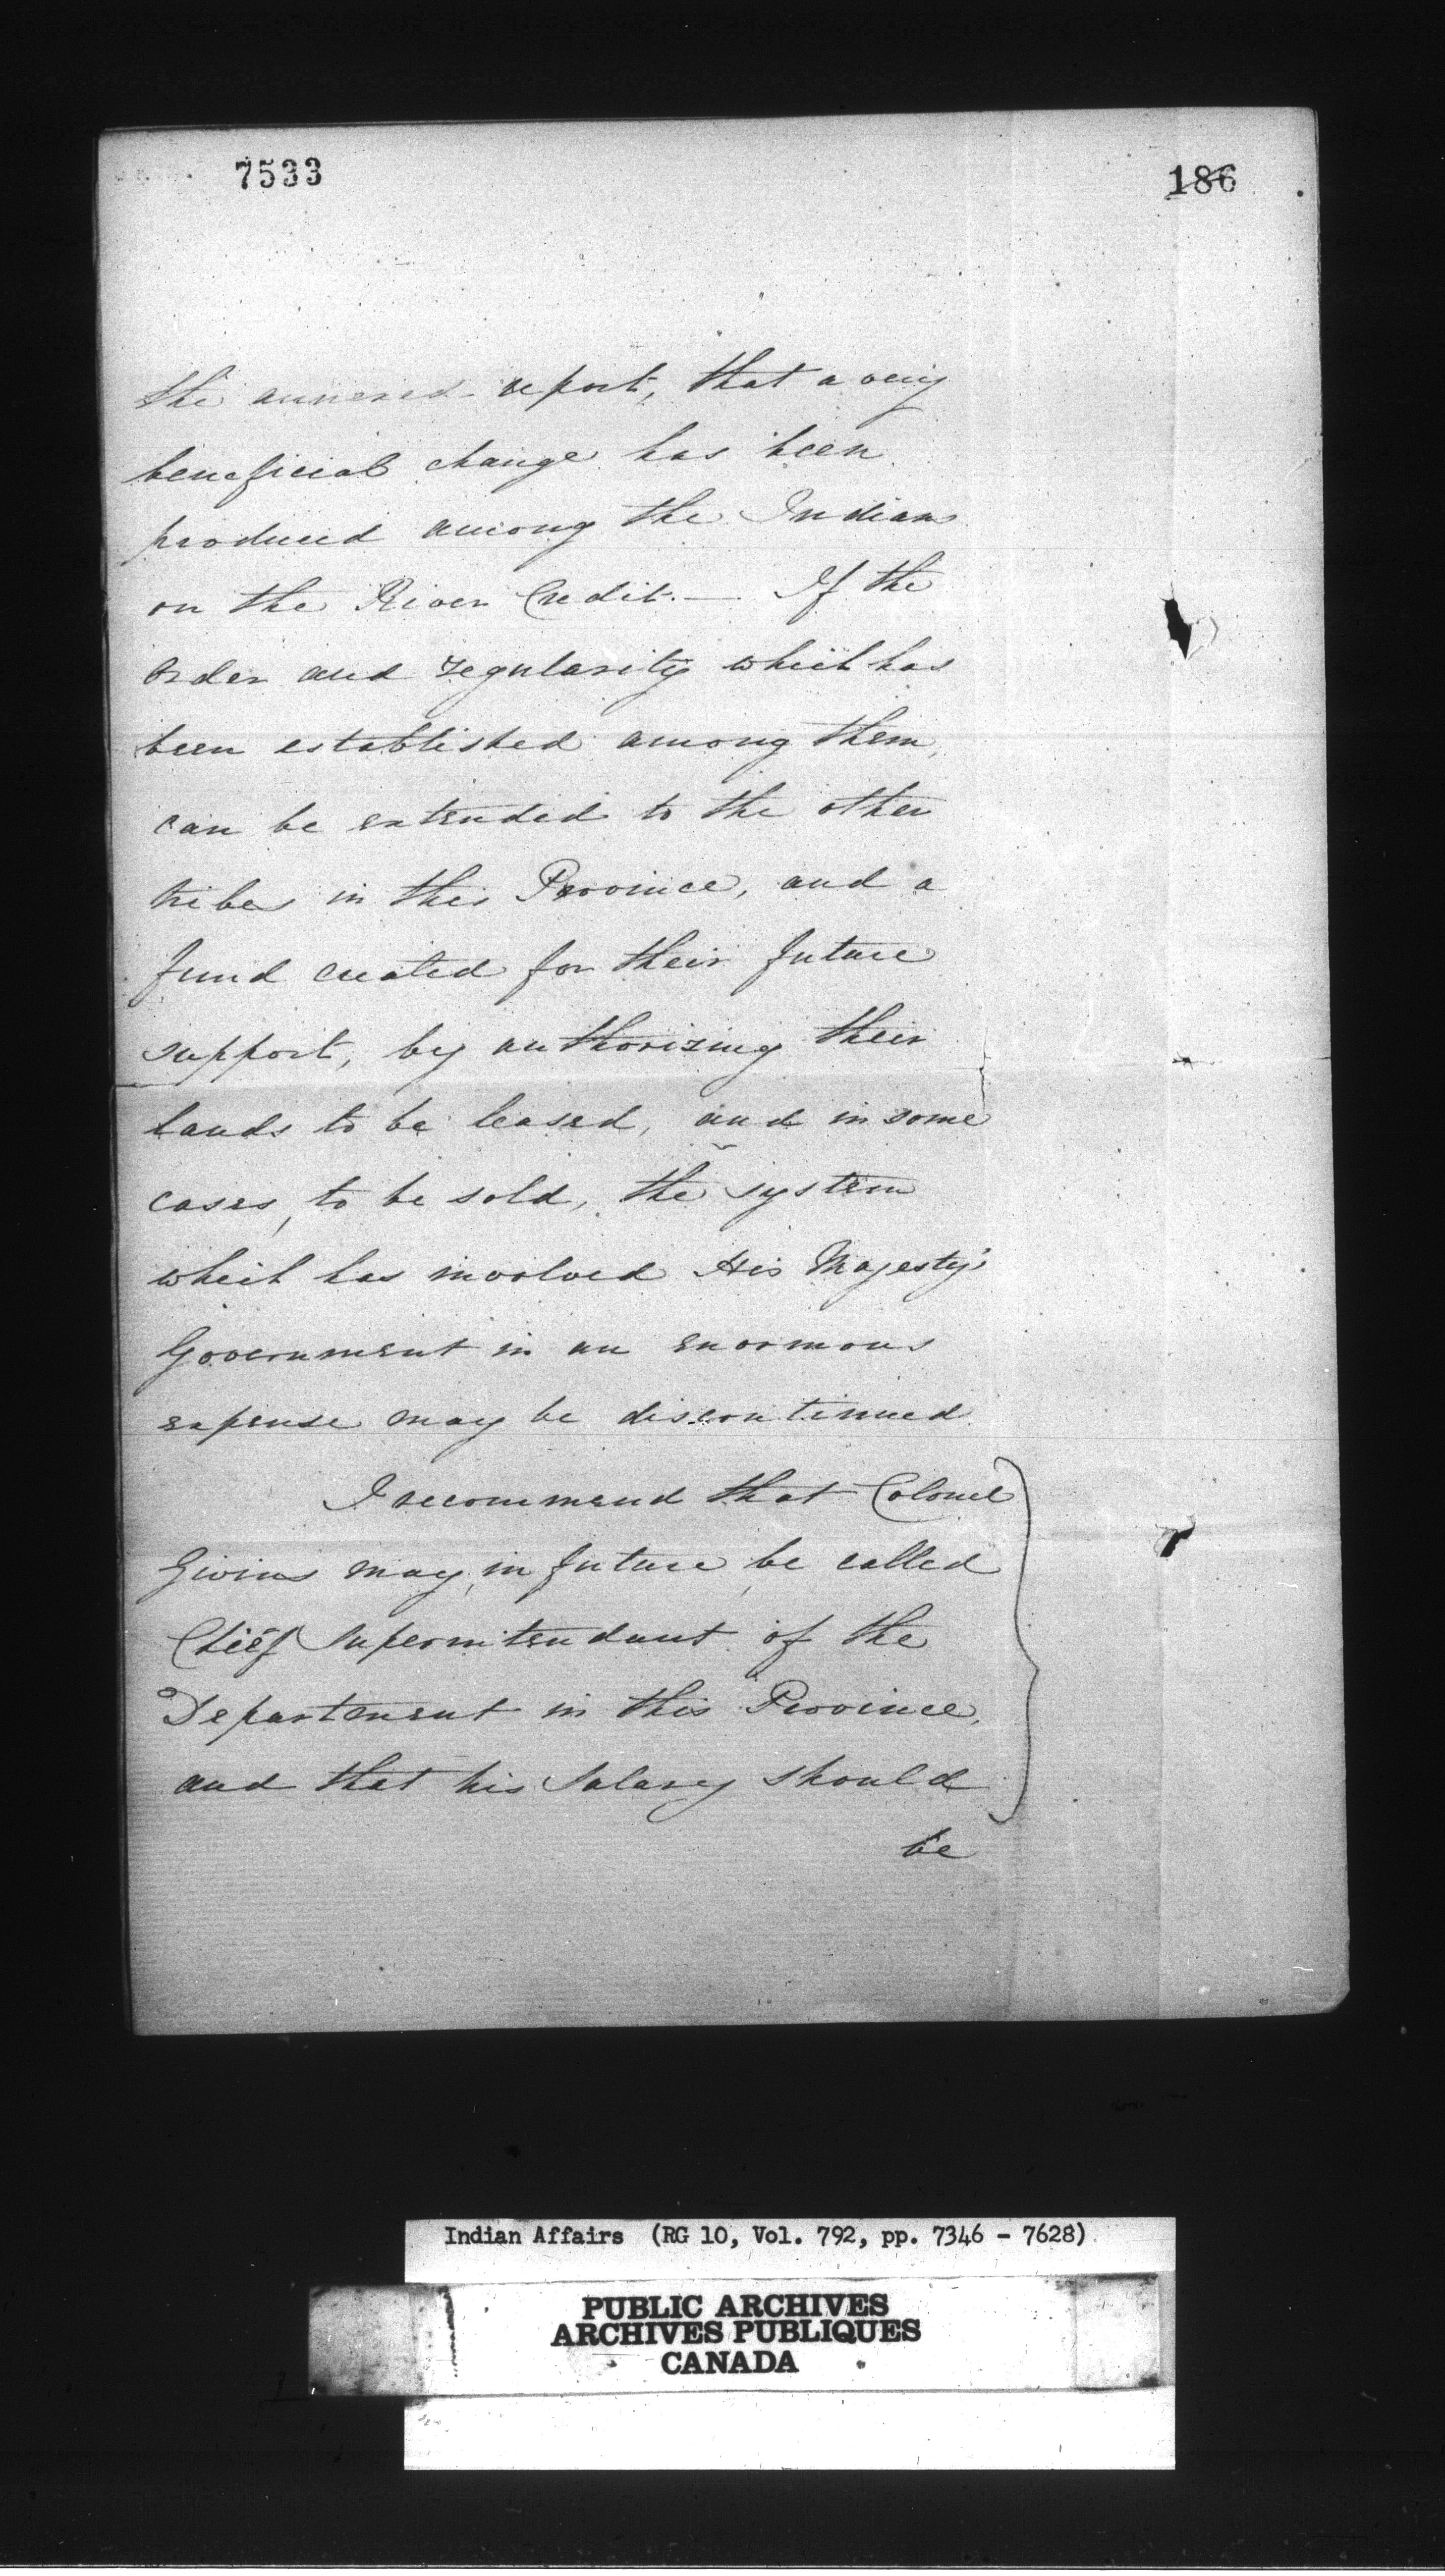 7533
186
the annexed report, that a very
beneficial change has been
produced among the Indians
on the River Credit. — If the
order and regularity which has
been established among them,
can be extended to the other
tribes in this Province, and a
fund created for their future
support, by authorizing their
lands to be leased, and in some
cases, to be sold, the system
which has involved His Majesty's
Government in an enormous
expense may be discontinued
I recommend that Colonel
Givins may, in future, be called
Chief Superintendant of the
Department in this Province,
and that his Salary should
be
Indian Affairs (RG 10, Vol. 792, pp. 7346 - 7628)
PUBLIC ARCHIVES
ARCHIVES PUBLIQUES
CANADA